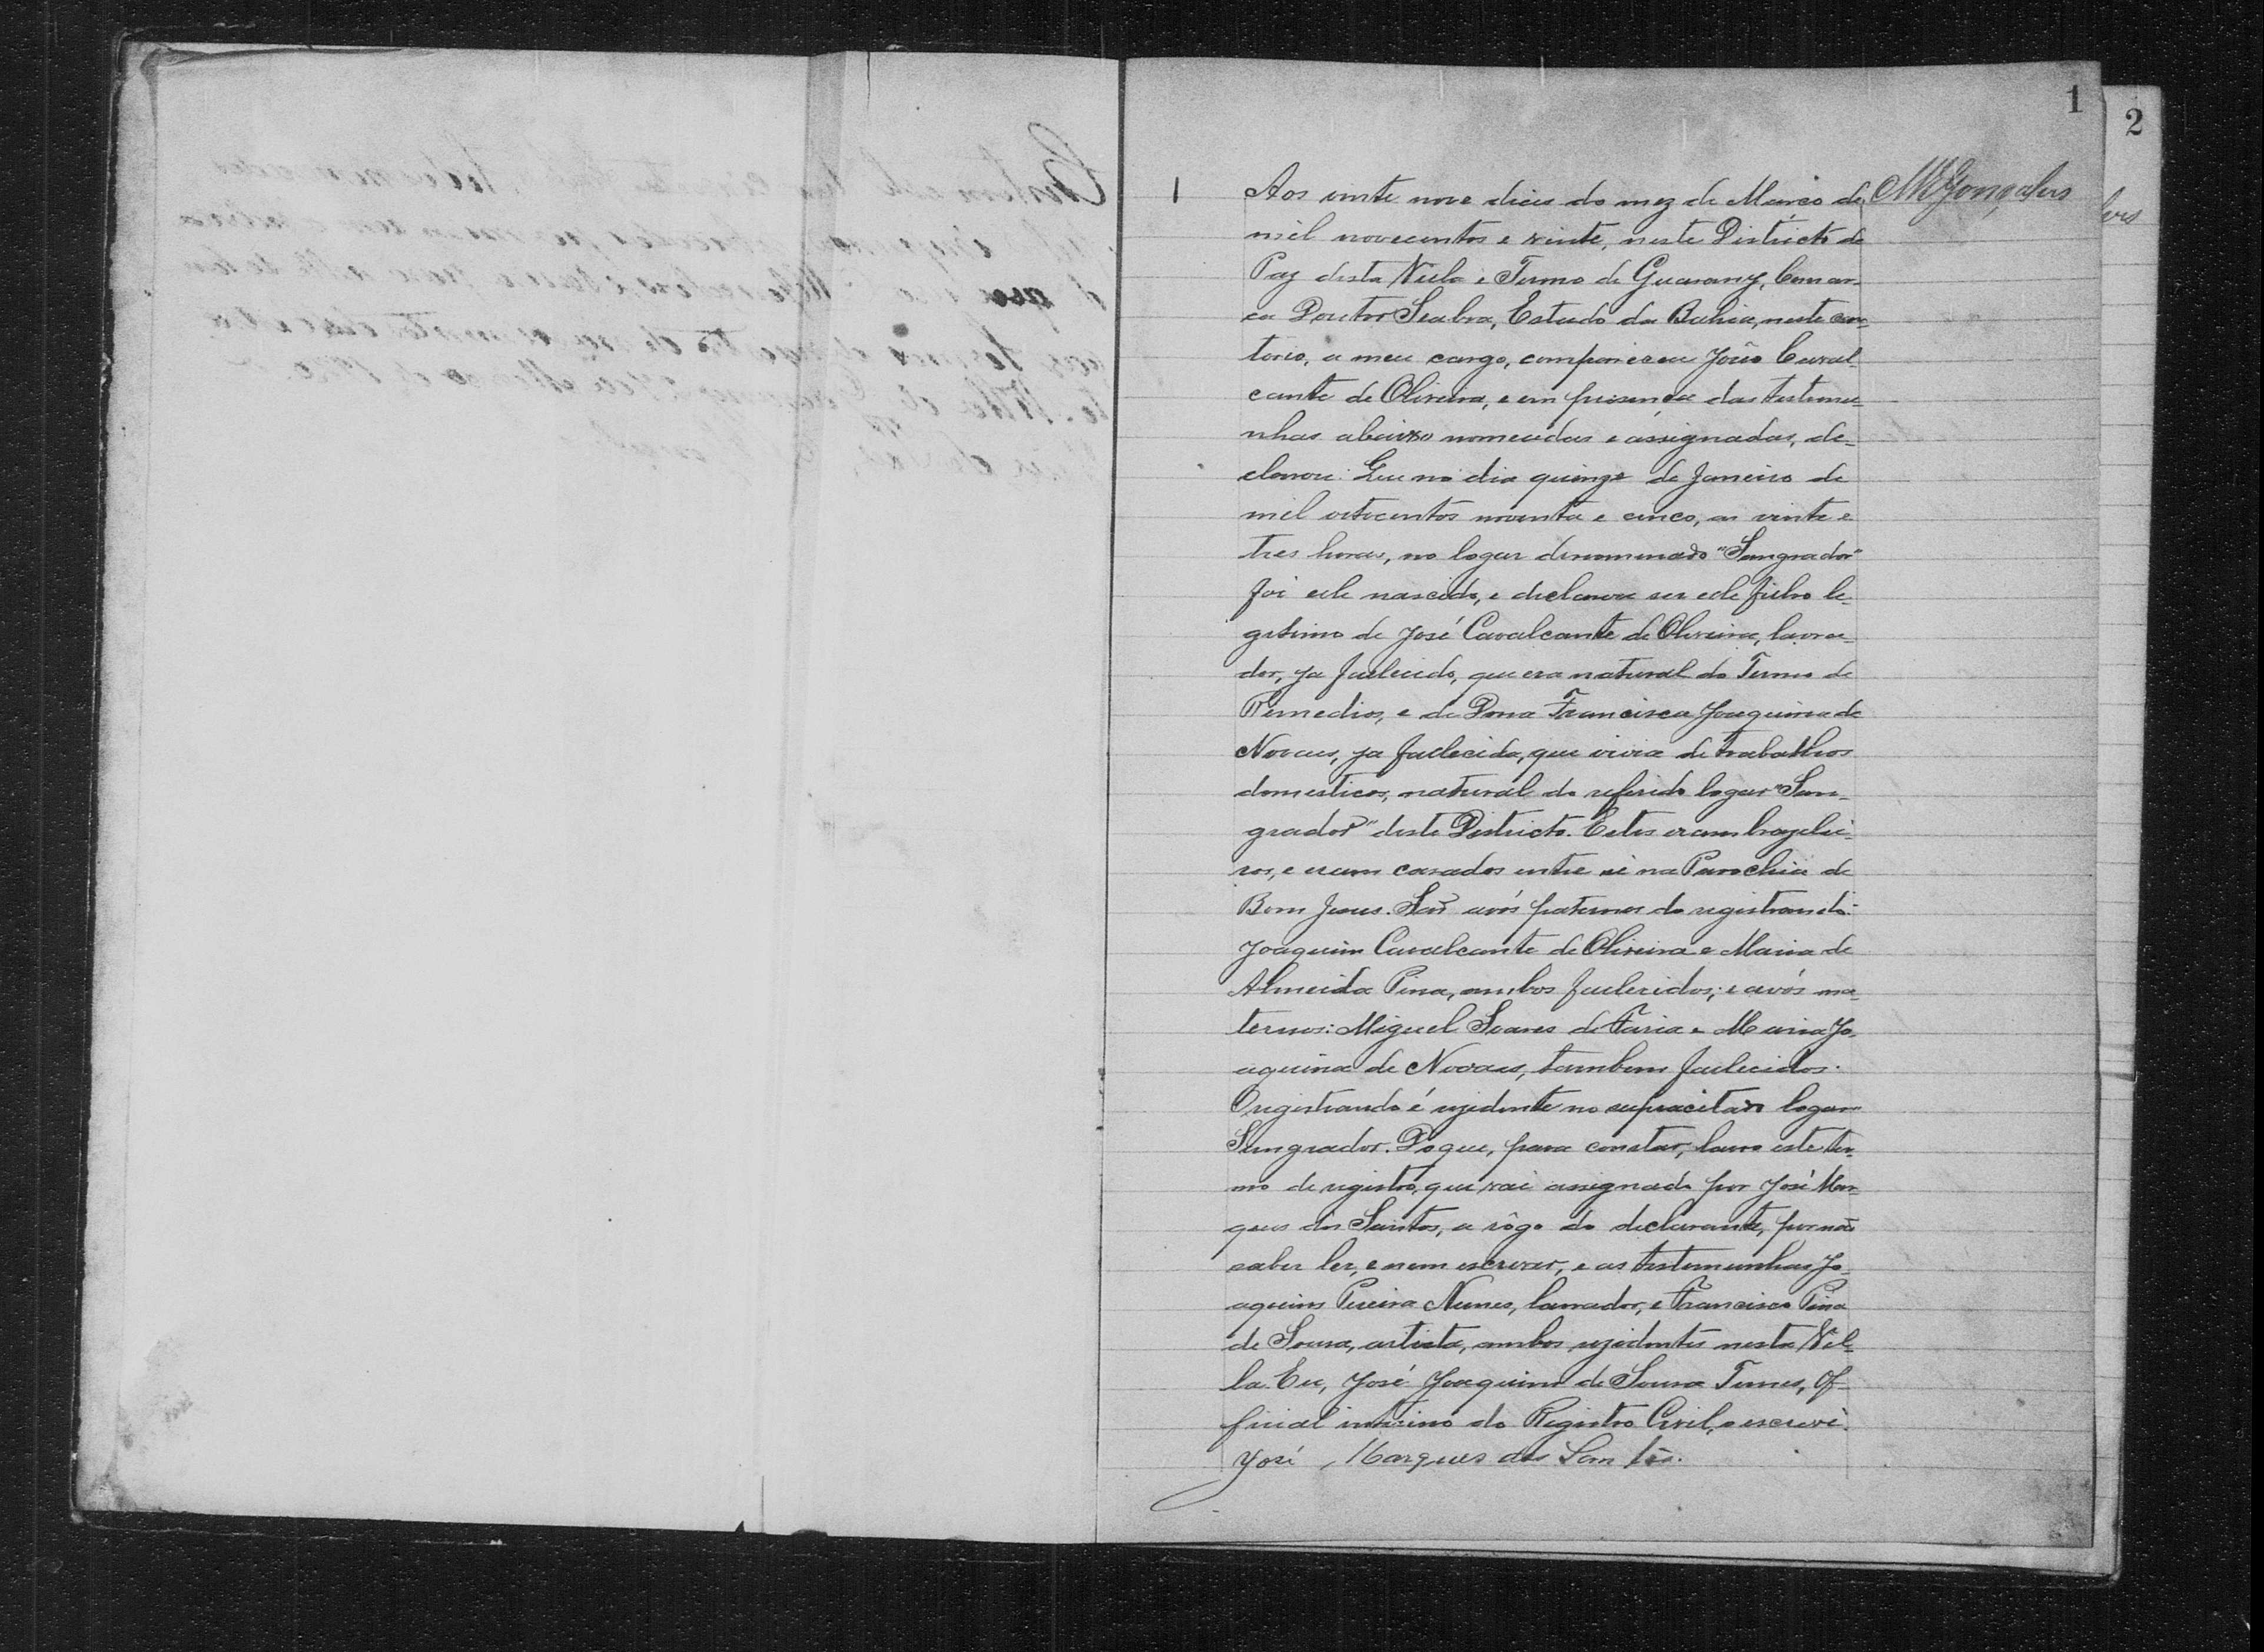 1
2
MBGonçalves
1
Aos vinte nove dias do mez de Março de
mil novecentos e vinte, neste Districto de
Paz desta Villa e Termo de Guarany, Comar-
ca Doutor Seabra, Estado da Bahia, neste car-
torio, a meu cargo, compareceu João Caval-
cante de Oliveira, e em presença das testemu-
nhas abaixo nomeadas e assignadas, de-
clarou: Que no dia quinze de Janeiro de
mil oitocentos noventa e cinco, as vinte e
tres horas, no logar denominado "Sangrador"
foi elle nascido, e declarou ser elle filho le-
gitimo de José Cavalcante de Oliveira, lavra-
dor, ja fallecido, que era natural do Termo de
Remedios, e de Dona Francisca Joaquina de
Novaes, ja fallecida, que vivia de trabalhos
domesticos, natural do referido logar "San-
grador" deste Districto. Estes eram brazilei-
ros, e eram casados entre si na Parochia de
Bom Jesus. São avós paternos do registrando:
Joaquim Cavalcante de Oliveira e Maria de
Almeida Pina, ambos fallecidos; e avós ma-
ternos: Miguel Soares de Faria e Maria Jo-
aquina de Novaes, tambem fallecidos.
O registrando é rezidente no supracitado logar
Sangrador. Do que, para constar, lavro este ter-
mo de registro, que vai assignado por José Mar-
ques dos Santos, a rôgo do declarante, por não
saber ler, e nem escrever, e as testemunhas Jo-
aquim Pereira Nunes, lavrador, e Francisco Pina
de Sousa, artista, ambos rezidentes nesta Vil-
la. Eu, José Joaquim de Sousa Tunes, Of-
ficial interino do Registro Civil, o escrevi.
José Marques dos Santos.